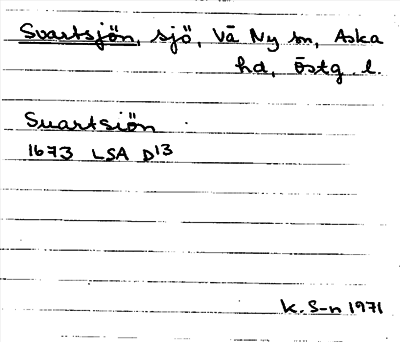 Svartsjön, sjö, Vä Ny sn, Aska
hd, Östg. l.
Suartsiön
1673 LSA D13
K. S-n 1971